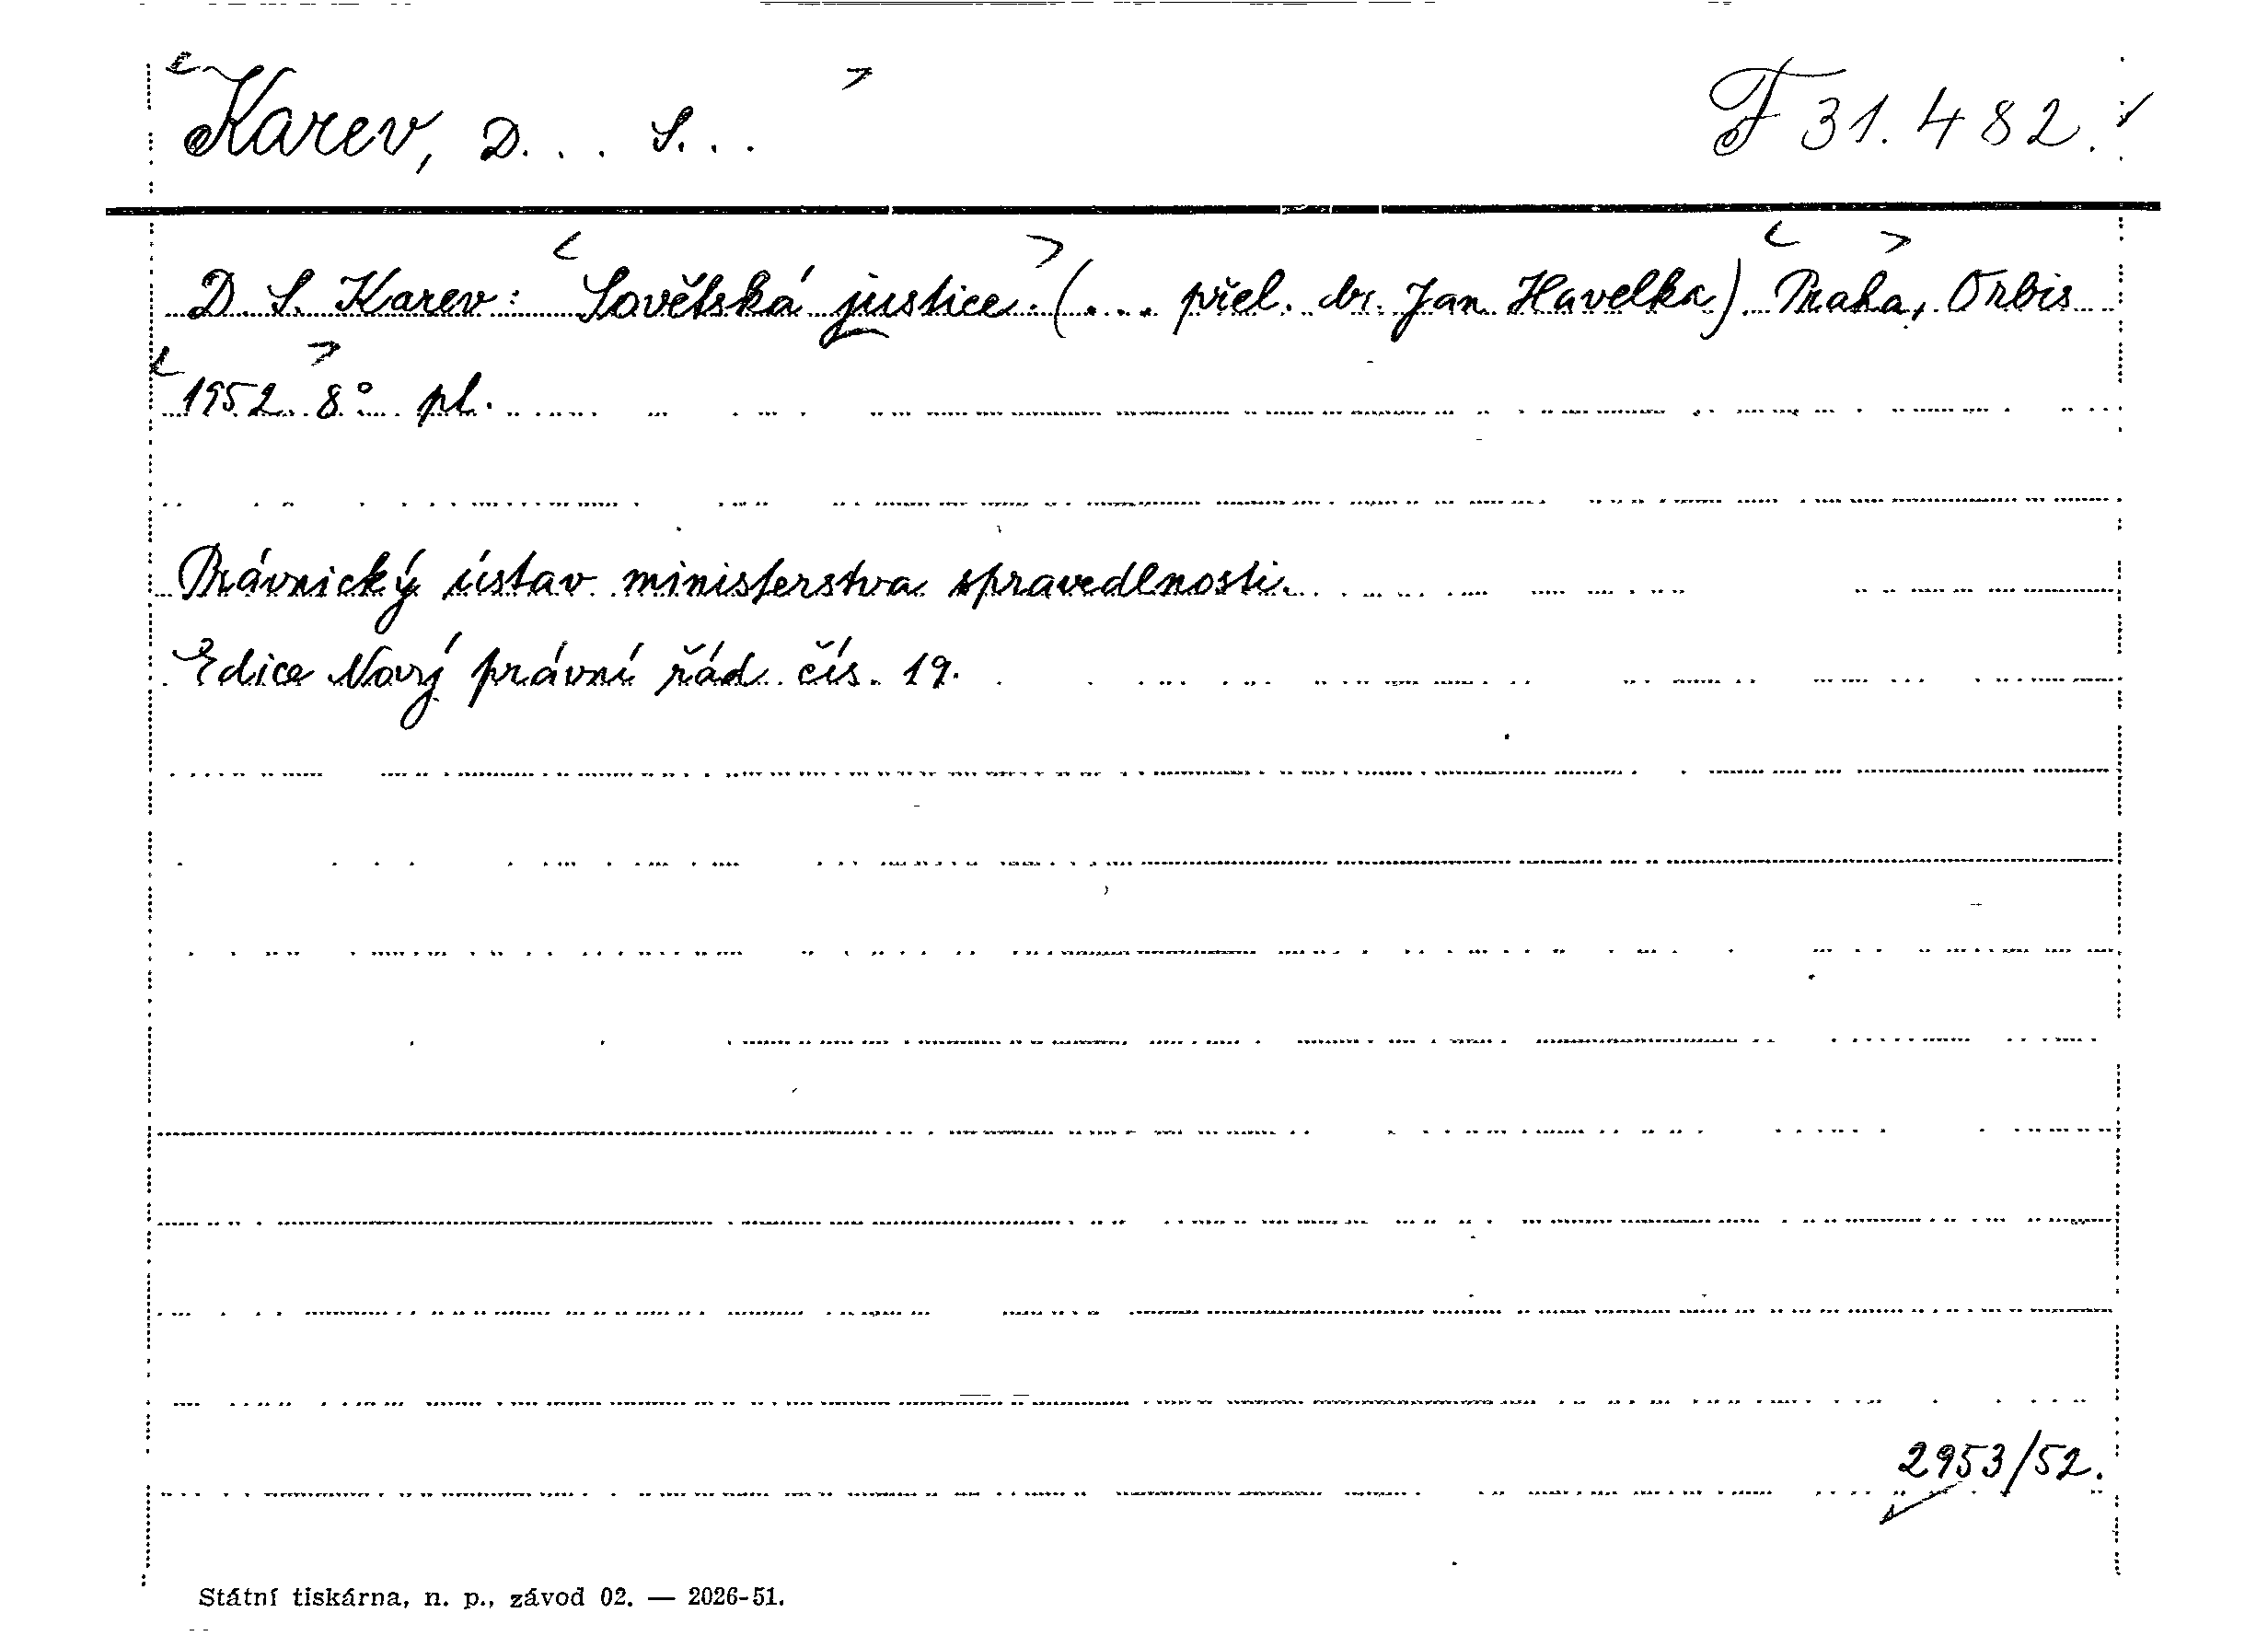 Karev, D... S... F 31.482.
D. S. Karev: Sovětská justice. (... přel. dr. Jan Havelka) Praha, Orbis
1952 8° pl.
Právnický ústav ministerstva spravedlnosti.
Edice Nový právní řád čís. 19.
2953/52.
Státní tiskárna, n. p., závod 02. — 2026-51.